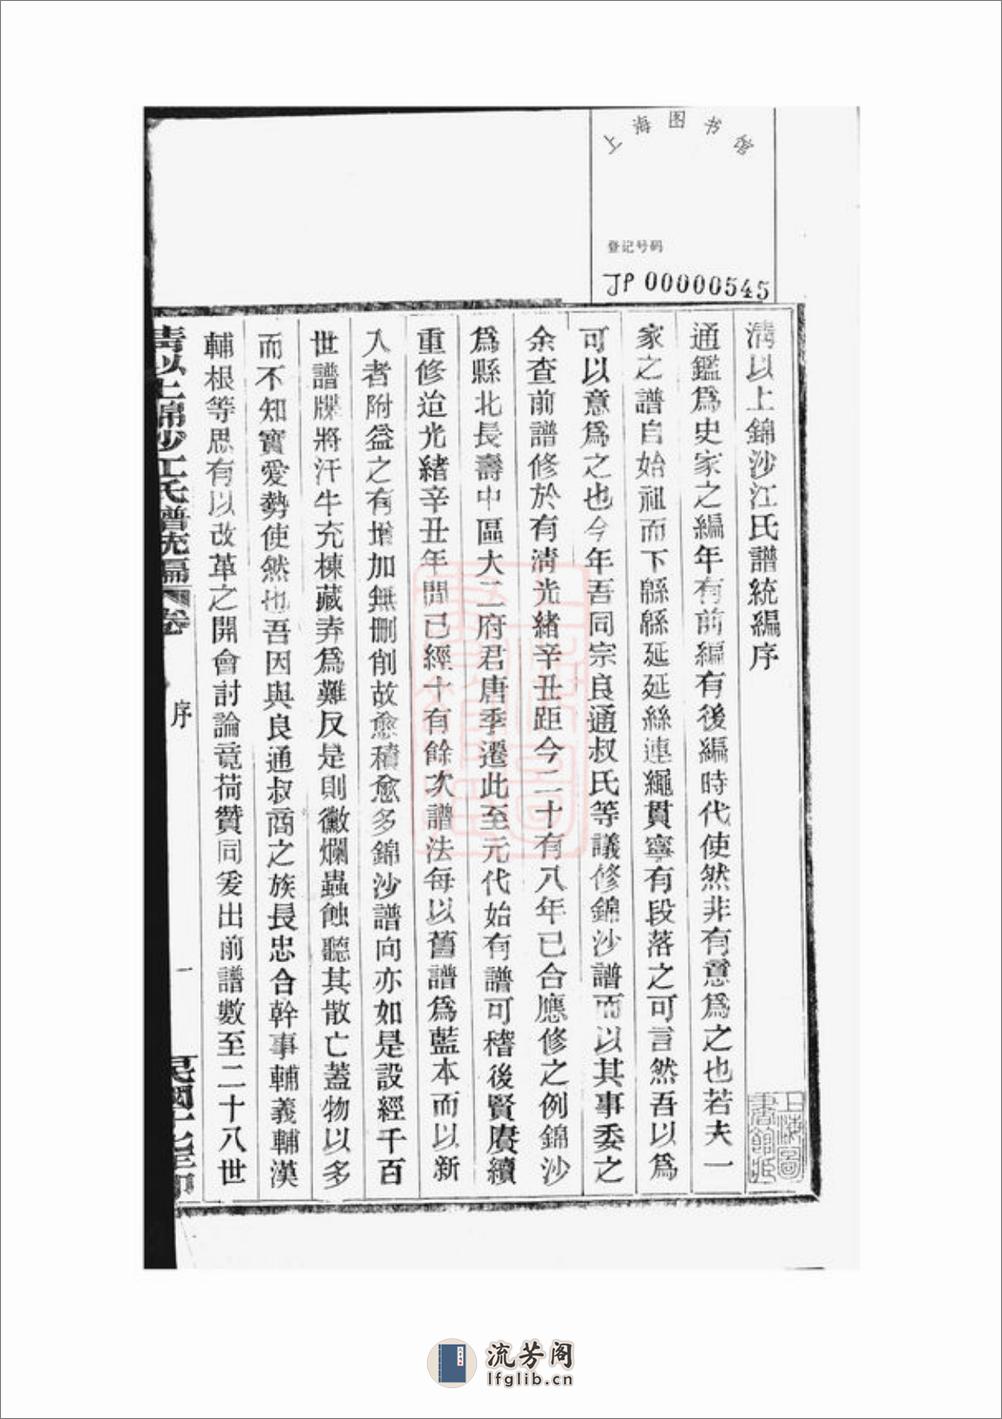 上海图书馆
登记号码
JP 00000545
清以上錦沙江氏譜統編序
通鑑爲史家之編年有前編有後編時代使然非有意爲之也若夫一
家之譜自始祖而下緜緜延延絲連繩貫寧有段落之可言然吾以爲
可以意爲之也今年吾同宗良通叔氏等議修錦沙譜而以其事委之
余查前譜修於有淸光緒辛丑距今二十有八年已合應修之例錦沙
爲縣北長壽中區大二府君唐季遷此至元代始有譜可稽後賢賡續
重修迨光緒辛丑年間已經十有餘次譜法每以舊譜爲藍本而以新
入者附益之有增加無刪削故愈積愈多錦沙譜向亦如是設經千百
世譜牒將汗牛充棟藏弆爲難反是則黴爛蟲蝕聽其散亡蓋物以多
而不知寶愛勢使然也吾因與良通叔商之族長忠合幹事輔義輔漢
輔根等思有以改革之開會討論竟荷贊同爰出前譜數至二十八世
清以上錦沙江氏譜統編
卷
序
一
民國十七年印
上海圖書館藏
流芳阁
lfglib.cn